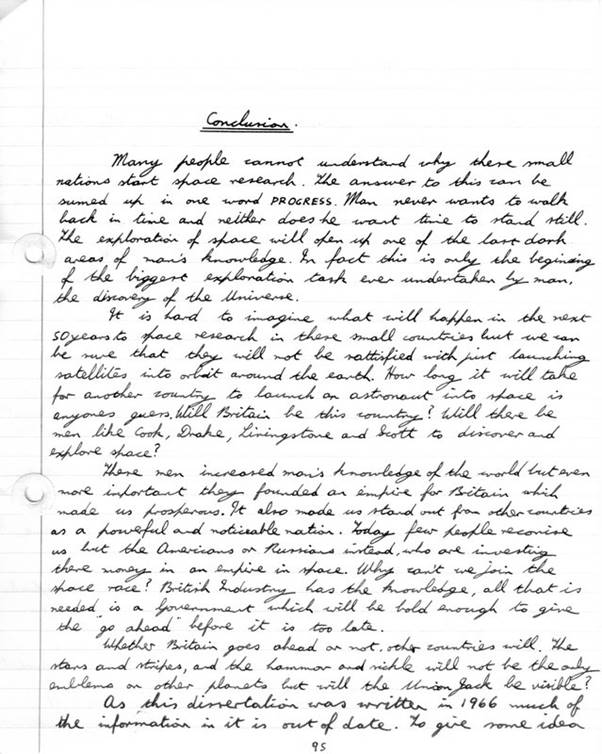 Conclusion.
Many people cannot understand why these small
nations start space research. The answer to this can be
sumed up in one word PROGRESS. Man never wants to walk
back in time and neither does he want time to stand still.
The exploration of space will open up one of the last dark
areas of man's knowledge. In fact this is only the begining
of the biggest exploration task ever undertaken by man,
the discovery of the Universe.
It is hard to imagine what will happen in the next
50 years to space research in these small countries but we can
be sure that they will not be sattisfied with just launching
satellites into orbit around the earth. How long it will take
for another country to launch an astronaut into space is
anyones guess. Will Britain be this country? Will there be
men like Cook, Drake, Livingstone and Scott to discover and
explore space?
These men increased man's knowledge of the world but even
more important they founded an empire for Britain which
made us prosperous. It also made us stand out from other countries
as a powerful and noticeable nation. Today few people reconise
us but the Americans or Russians instead, who are investing
there money in an empire in space. Why can't we join the
space race? British Industry has the knowledge, all that is
needed is a Government which will be bold enough to give
the "go ahead" before it is too late.
Whether Britain goes ahead or not, other countries will. The
stars and stripes, and the hammor and sickle will not be the only
emblems on other planets but will the Union Jack be visible?
As this dissertation was written in 1966 much of
the information in it is out of date. To give some idea
95